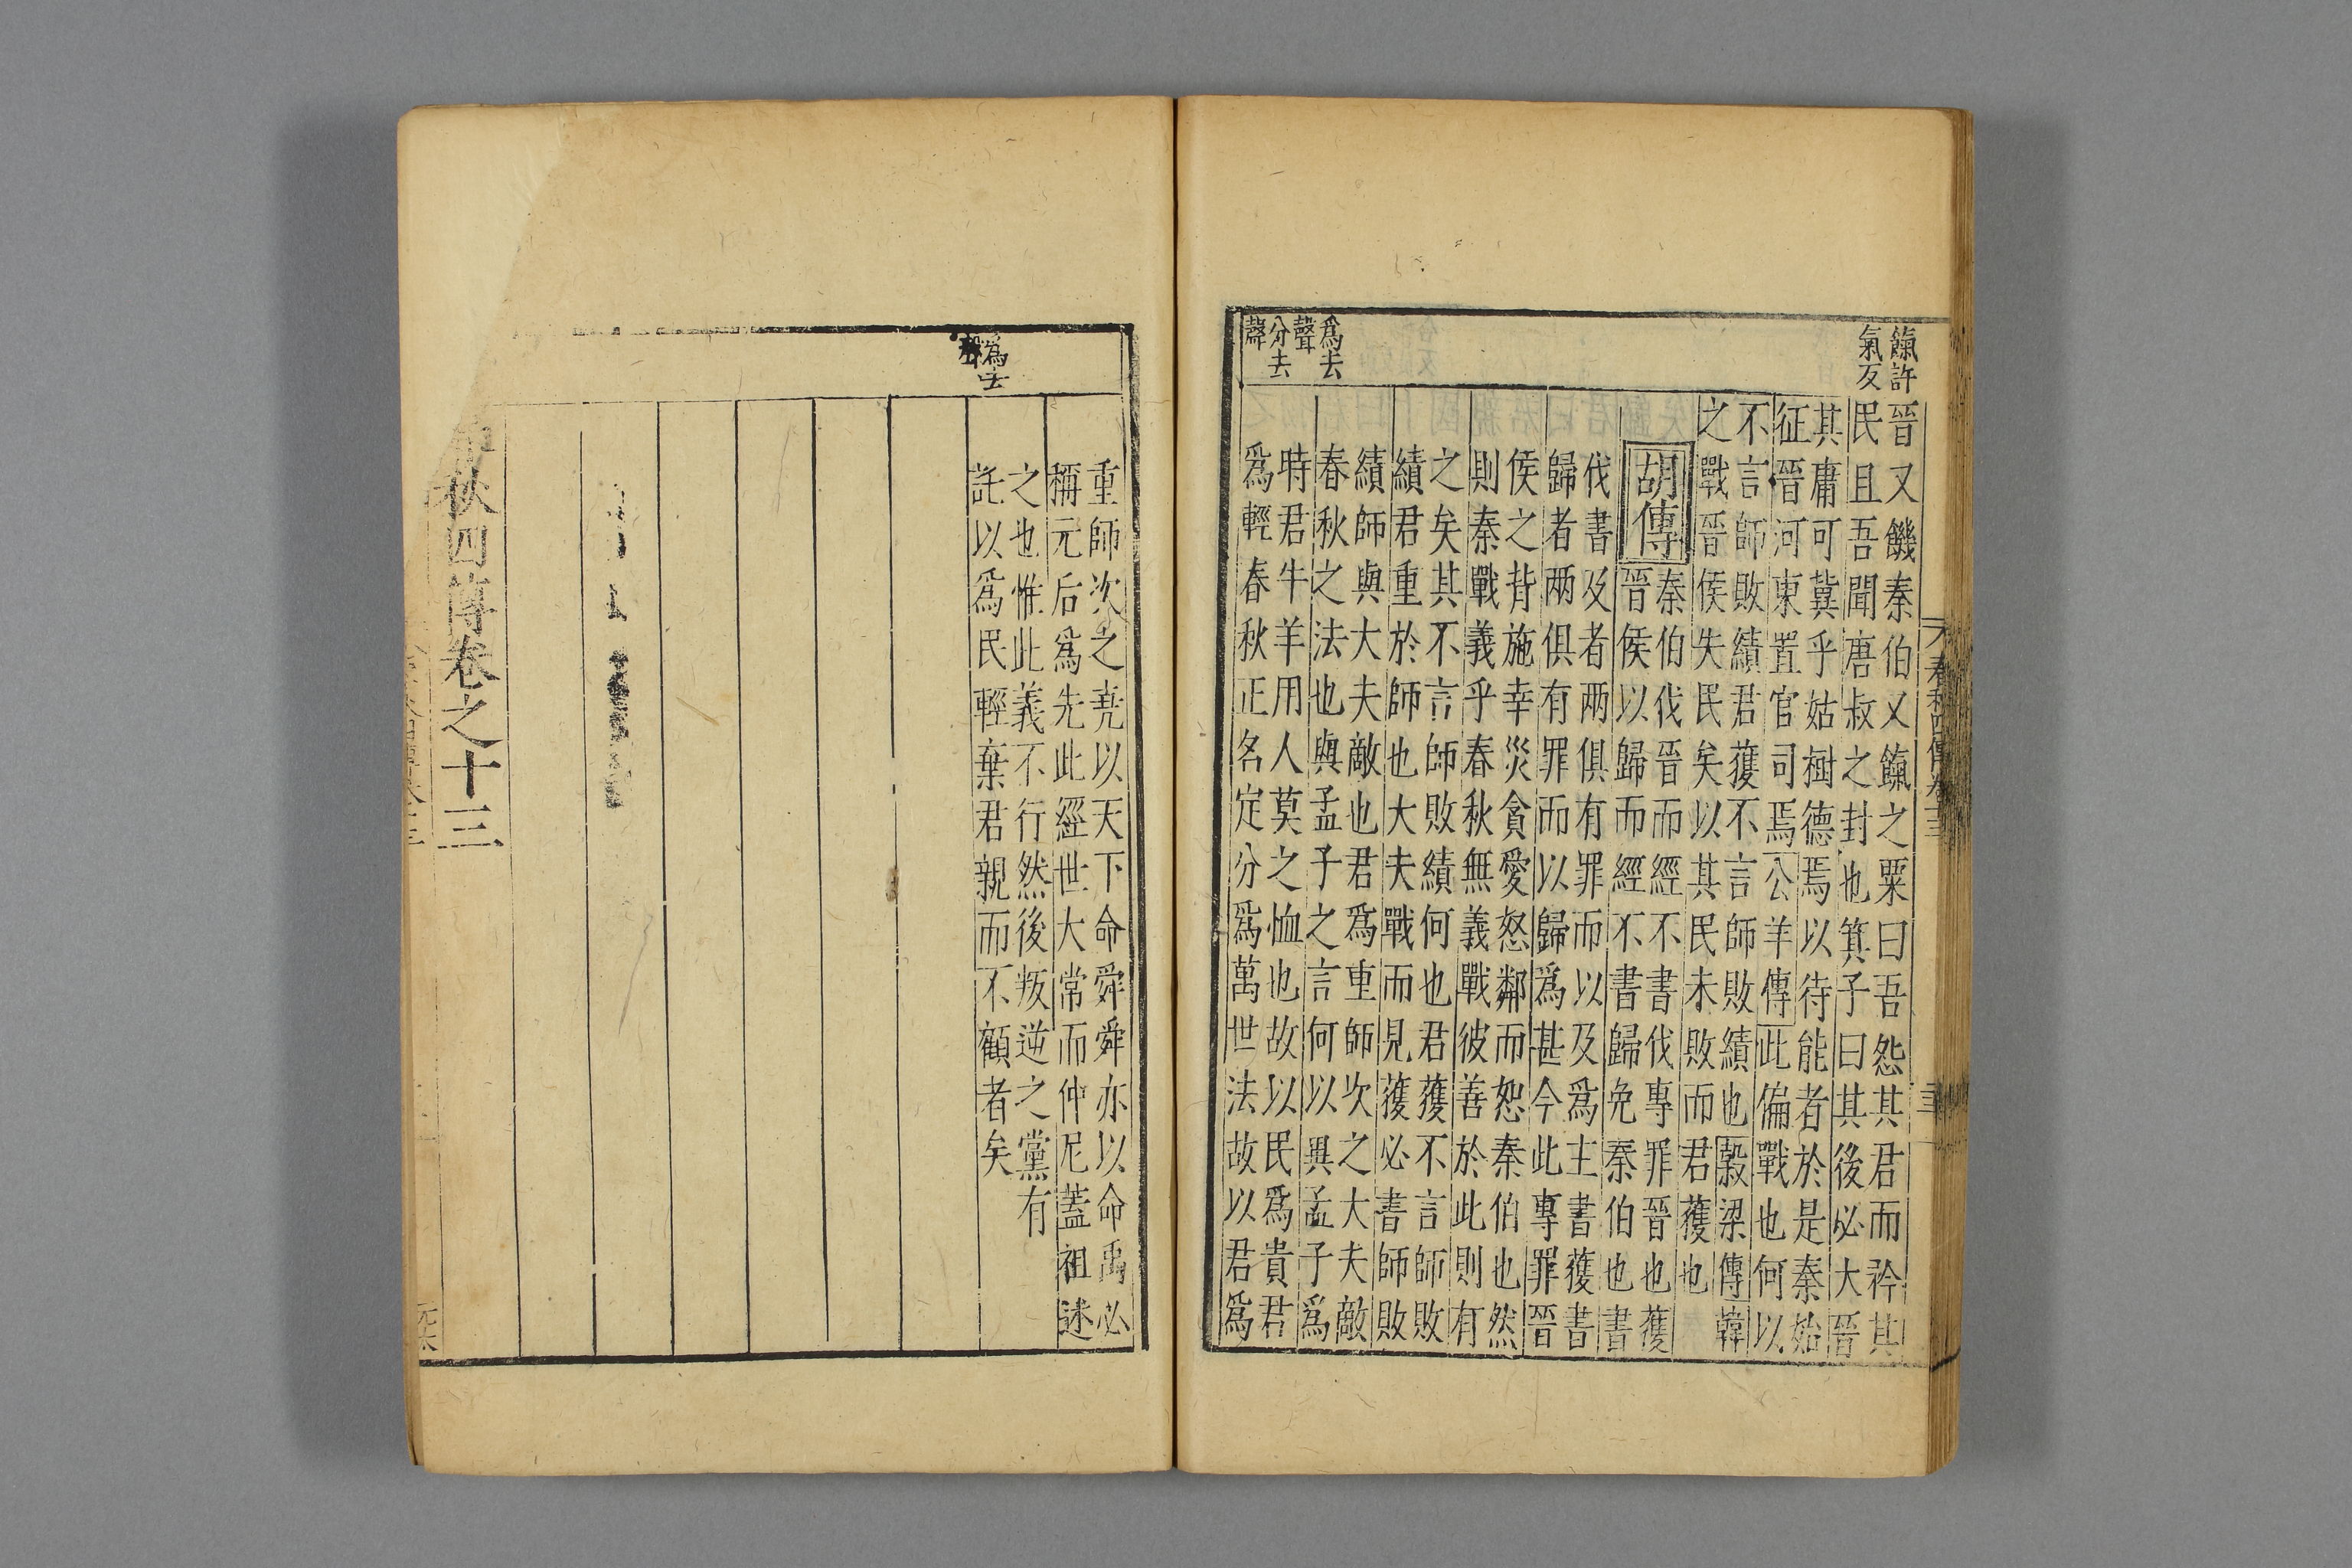 餼許
氣反
晉又饑秦伯又餼之粟曰吾怨其君而矜其
民且吾聞唐叔之封也箕子曰其後必大晉
其庸可冀乎姑樹德焉以待能者於是秦始
征晉河東置官司焉公羊傳此偏戰也何以
不言師敗績君獲不言師敗績也穀梁傳韓
之戰晉侯失民矣以其民未敗而君獲也
胡傳
秦伯伐晉而經不書伐專罪晉也獲
晉侯以歸而經不書歸免秦伯也書
伐書及者兩俱有罪而以及為主書獲書
歸者兩俱有罪而以歸為甚今此專罪晉
侯之背施幸災貪愛怒鄰而恕秦伯也然
則秦戰義乎春秋無義戰彼善於此則有
之矣其不言師敗績何也君獲不言師敗
績君重於師也大夫戰而見獲必書師敗
績師與大夫敵也君為重師次之大夫敵
春秋之法也與孟子之言何以異孟子為
時君牛羊用人莫之恤也故以民為貴君
為輕春秋正名定分為萬世法故以君為
為去
聲
分去
聲
春秋四傳卷十三
重師次之堯以天下命舜舜亦以命禹必
稱元后為先此經世大常而仲尼蓋祖述
之也惟此義不行然後叛逆之黨有
託以為民輕棄君親而不顧者矣
為去
秋四傳卷之十三